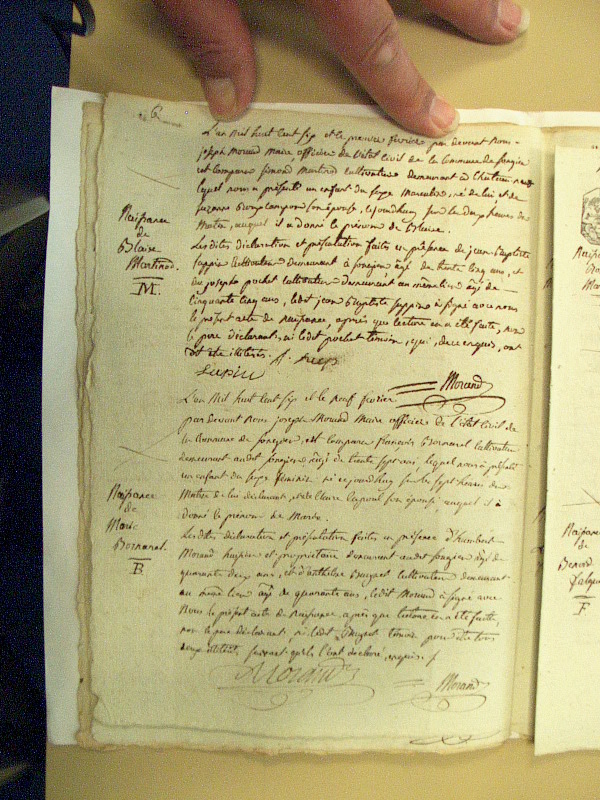 6
L'an Mil huit Cent Six et le premier fevrier par devant Nous
joseph Morand Maire, officier de l'état Civil de la Commune de
est comparu Simond Martinod Cultivateur demeurant à
lequel nous a présenté un enfant du Sexe Masculin, né de lui, et de
Suzanne son épouse, Cejourdhuy Sur les deux heures du
Matin, auquel il a donné le prénom de Blaise.
Naissance
de
Blaise
Martinod.
M.
Les dites déclaration et présentation faites en présence de jean Baptiste
Suppin Cultivateur Demeurant à Songieu âgé de trente Cinq ans, et
de joseph pochet Cultivateur Demeurant au âgé de
Cinquante Cinq ans, ledit jean Baptiste Suppin à Signé avec nous
le présent acte de Naissance, après que lecture en a été faite, non
le père déclarant, ni ledit pochet témoin, qui, de ce enquis, ont
dit etre illiterés.
Morand
L'an Mil huit Cent Six et le Neuf fevrier
par devant Nous joseph Morand Maire officier de l'état Civil de
la Commune de Songieu, est comparu françois Bornarel Cultivateur
demeurant audit Songieu, âgé de trente Sept ans, lequel nous à présenté
un enfant du Sexe feminin né cejourdhuy Sur les Sept heures du
Matin de lui déclarant, et de Claire son épouse auquel il à
donné le prénom de Marie.
Naissance
de
Marie
Bornarel.
B.
Les dites déclaration et présentation faites en présence d'humbert
Morand huissier et propriétaire demeurant audit Songieu âgé de
quarante deux ans, et d'anthelme Cultivateur demeurant
au même lieu âgé de quarante ans, ledit Morand à Signé avec
Nous le présent acte de Naissance, après que lecture en a été faite,
non le père déclarant, ni ledit témoin pour etre tous
deux illiterés, Suivant qu'ils l'ont déclaré, enquis.
Morand
Morand
Naissance
de
F